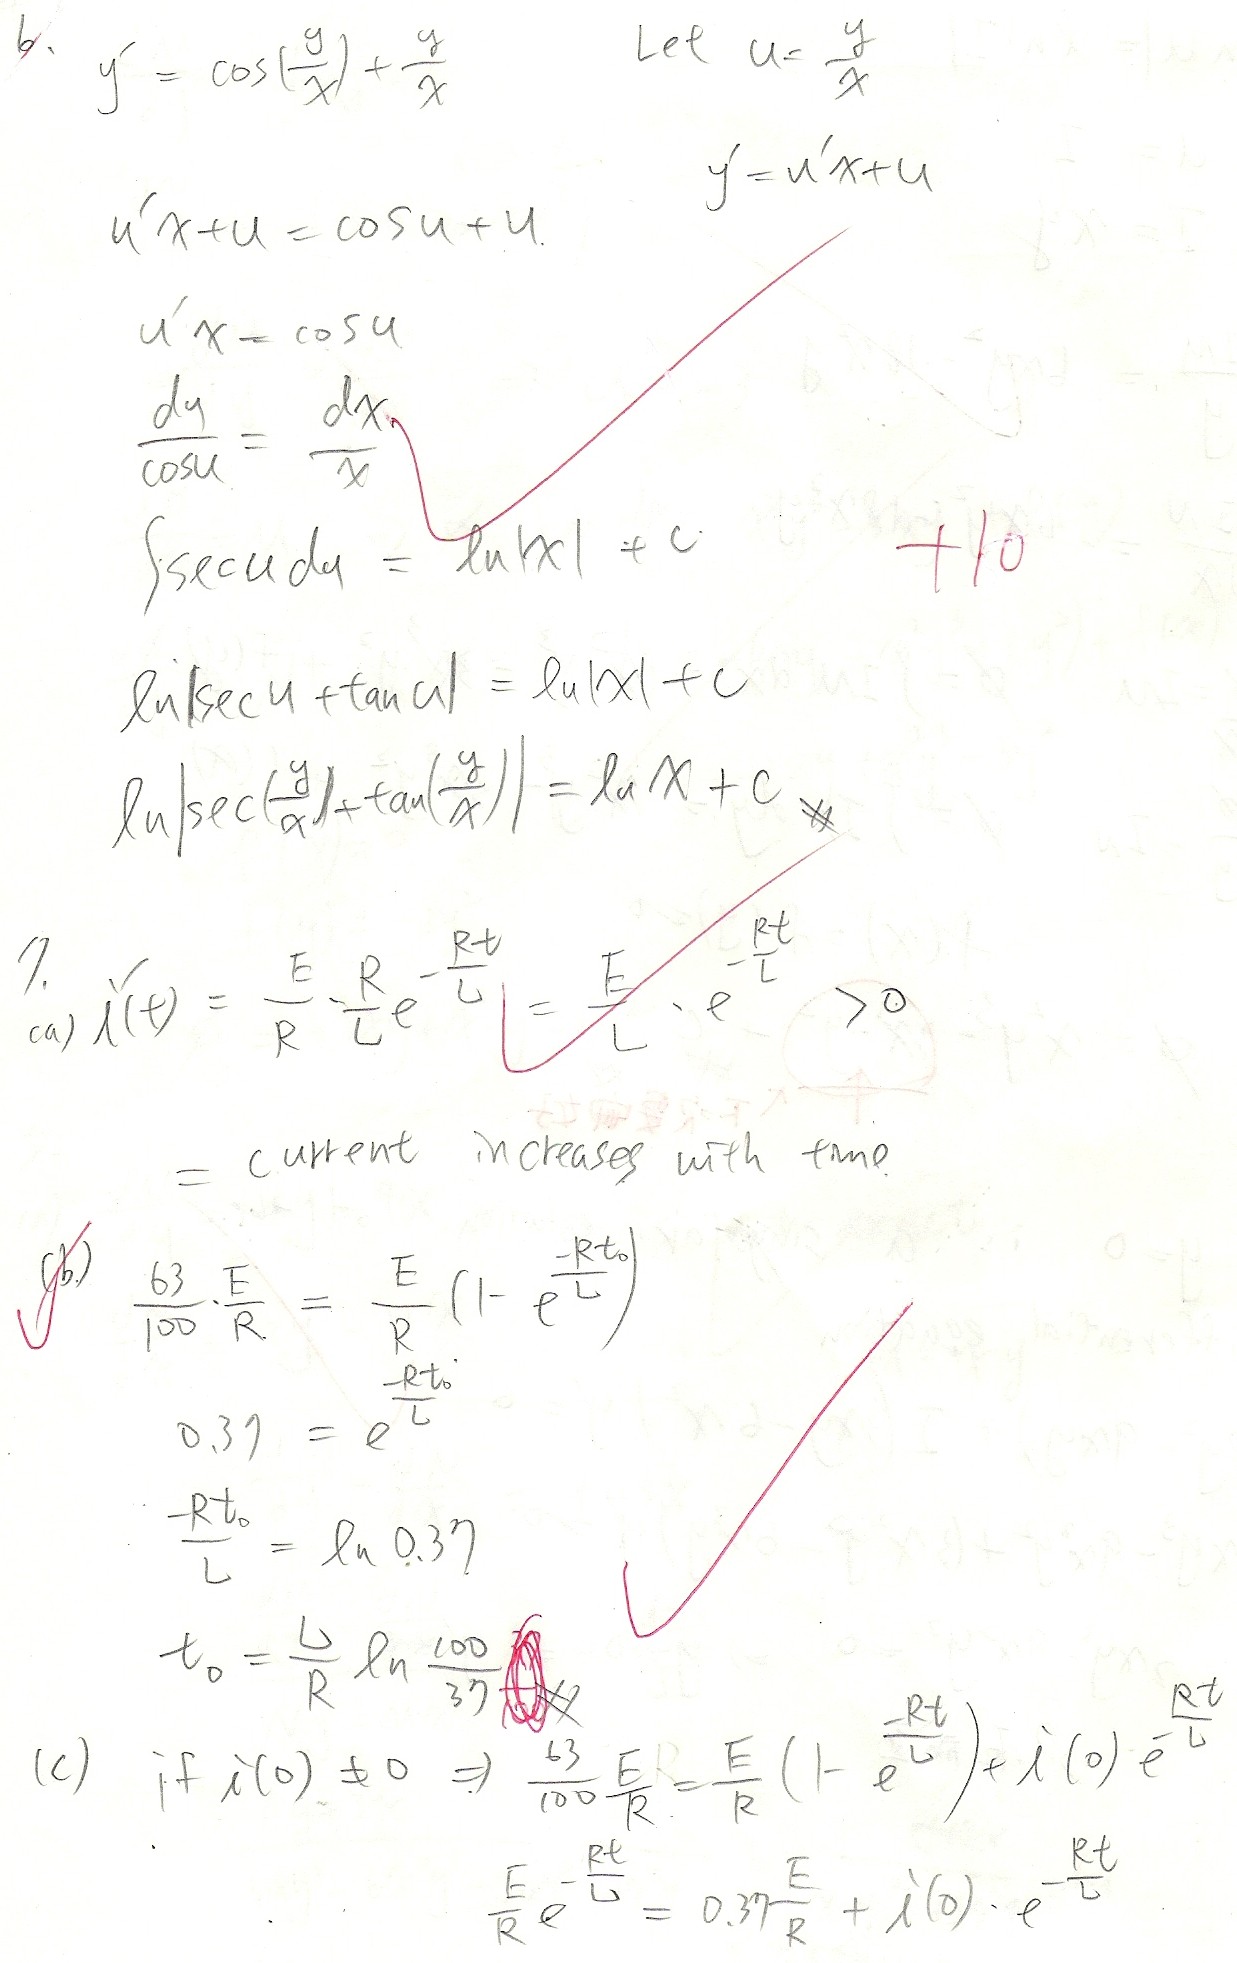 6. y' = cos(y/x) + y/x    Let u = y/x
y' = u'x+u
u'x+u = cosu+u.
u'x = cosu
du/cosu = dx/x
∫secudu = ln|x| + c
+10
ln|secu+tanu| = ln|x|+c
ln|sec(y/x)+tan(y/x)| = lnx+c
7.
(a) i'(t) = E/R · R/L e^(-Rt/L) = E/L · e^(-Rt/L) >0
= current increases with time
(b.) 63/100 · E/R = E/R (1- e^(-Rt₀/L))
0.37 = e^(-Rt₀/L)
-Rt₀/L = ln 0.37
t₀ = L/R ln 100/37
(c) if i(0) ≠ 0 ⇒ 63/100 E/R = E/R (1- e^(-Rt/L)) + i(0) e^(-Rt/L)
E/R e^(-Rt/L) = 0.37 E/R + i(0) · e^(-Rt/L)